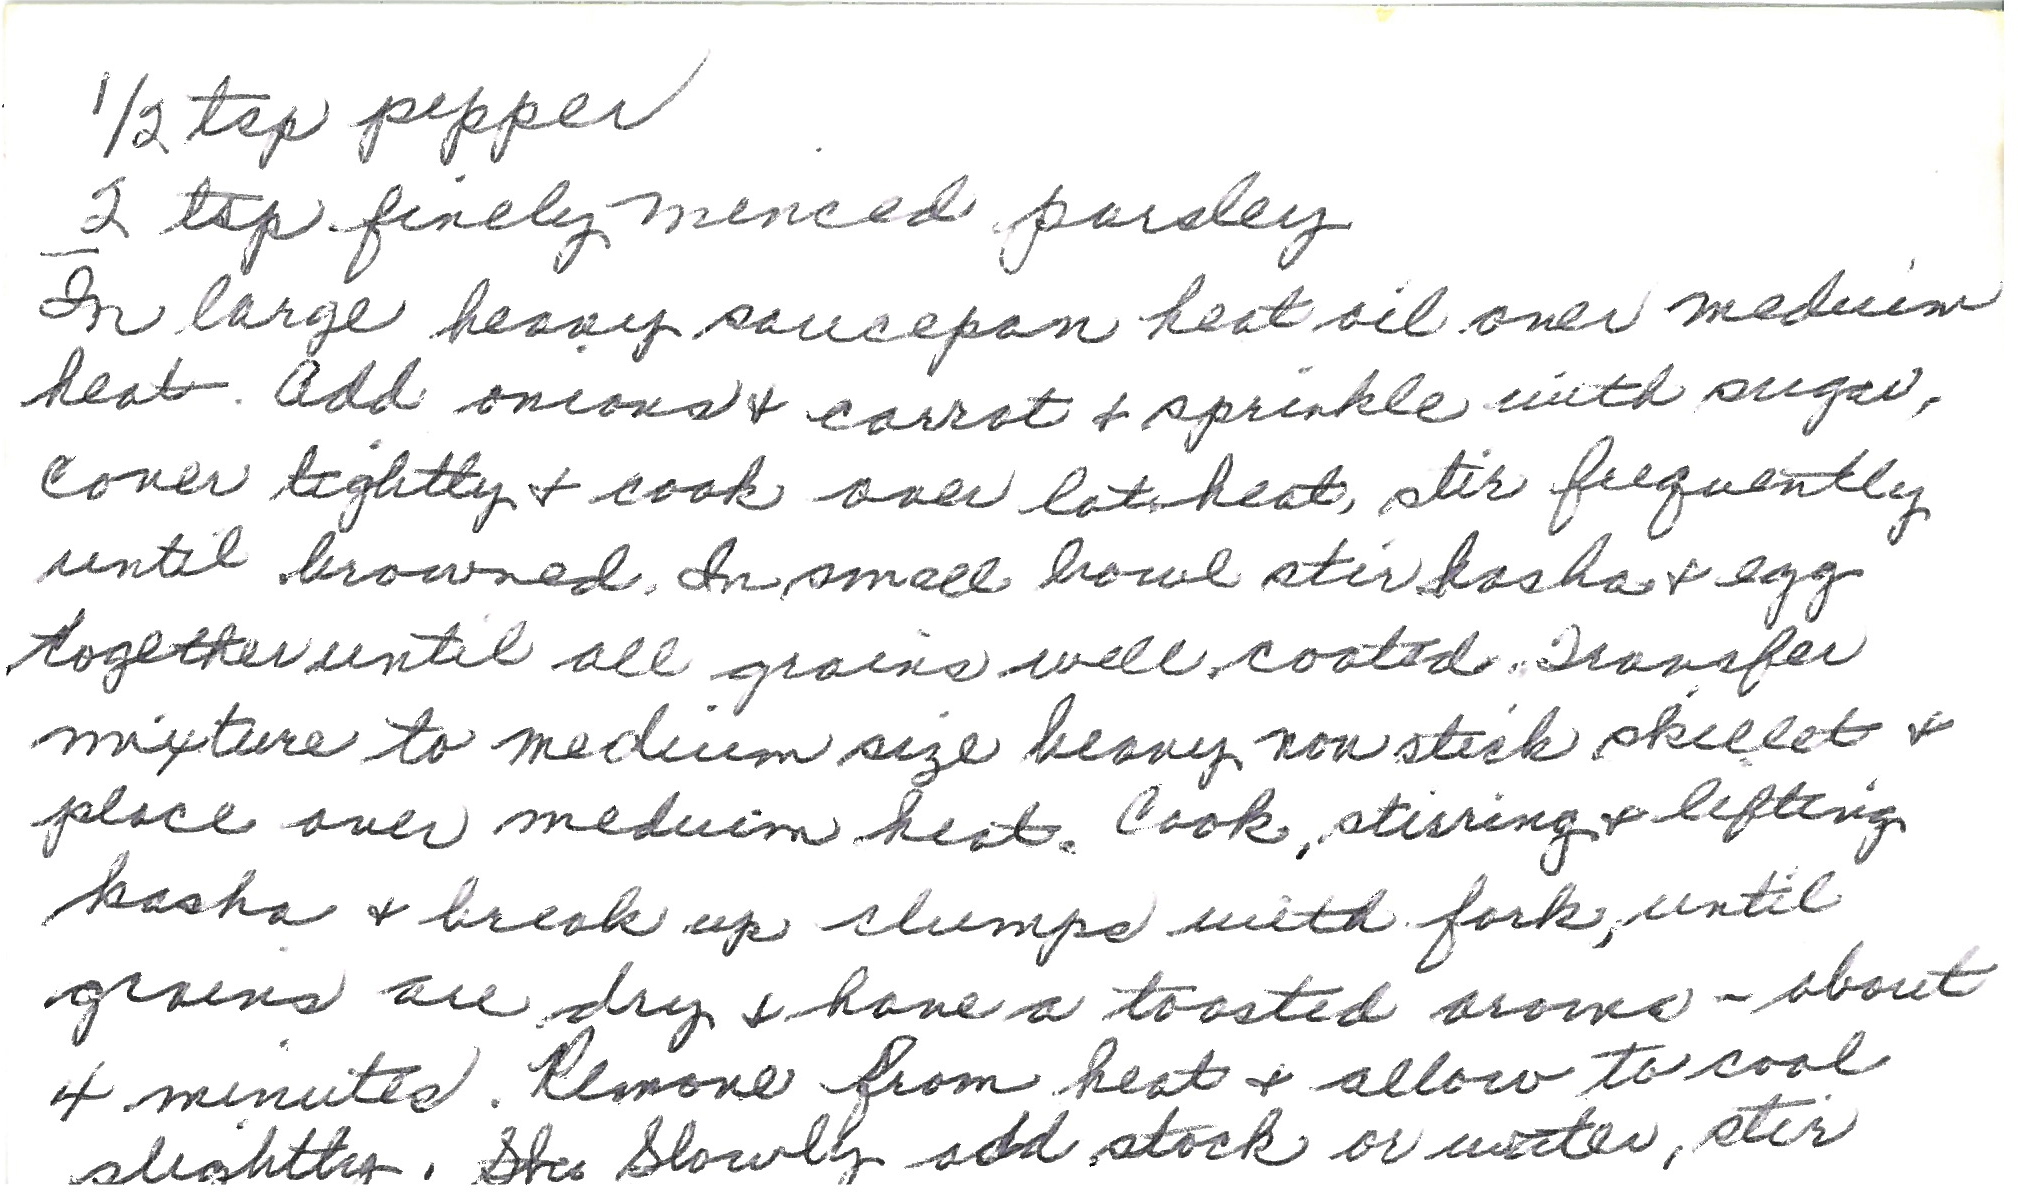 1/2 tsp pepper
2 tsp finely menced parsley
In large heavy saucepan heat oil over meduim
heat. Add onions & carrot & sprinkle with sugar,
cover tightly & cook over lot heat, stir frequently
until browned. In small bowl stir kasha & egg
together until all grains well coated. Transfer
mixture to meduim size heavy non stick skillet &
place over meduim heat. Cook, stirring & lifting
kasha & break up clumps with fork, until
grains are dry & have a toasted aroma - about
4 minutes. Remove from heat & allow to cool
slightly. Slowly add stock or water, stir